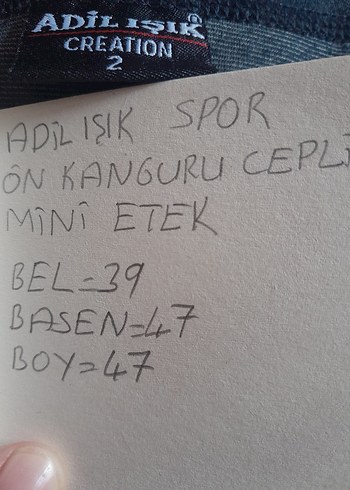 ADİL IŞIK®
CREATION
2
ADİL IŞIK SPOR
ÖN KANGURU CEPLİ
MİNİ ETEK
BEL=39
BASEN=47
BOY=47